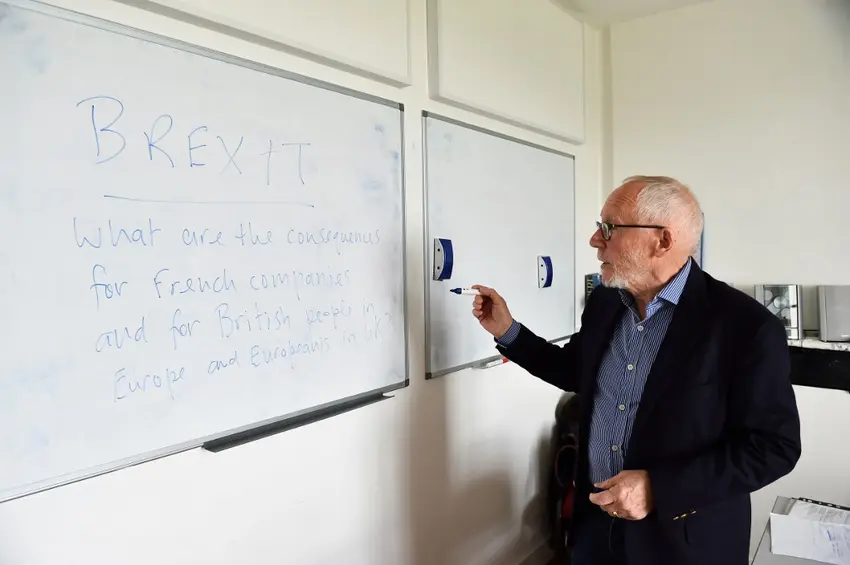 BREXIT
What are the consequences
for French companies
and for British people in
Europe and Europeans in UK?